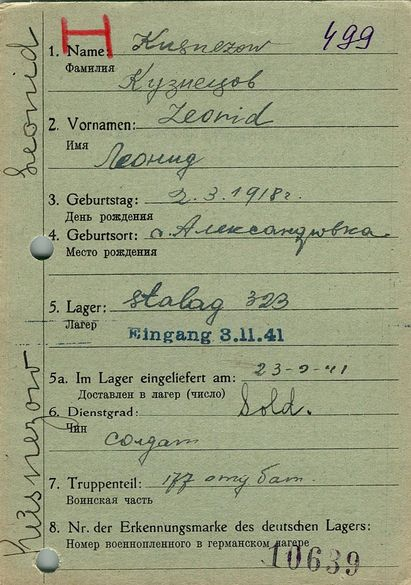 499
H
1. Name: Kusnezow
Фамилия
Кузнецов
2. Vornamen: Leonid
Имя
Леонид
3. Geburtstag: 2.3.1918г.
День рождения
4. Geburtsort: с. Александровка
Место рождения
5. Lager: Stalag 323
Лагер
Eingang 3.11.41
5a. Im Lager eingeliefert am: 23-9-41
Доставлен в лагер (число)
6. Dienstgrad: Sold.
Чин
солдат
7. Truppenteil: 177 бат.
Воинская часть
8. Nr. der Erkennungsmarke des deutschen Lagers:
Номер военнопленного в германском лагере
10639
Kusnezow
Leonid